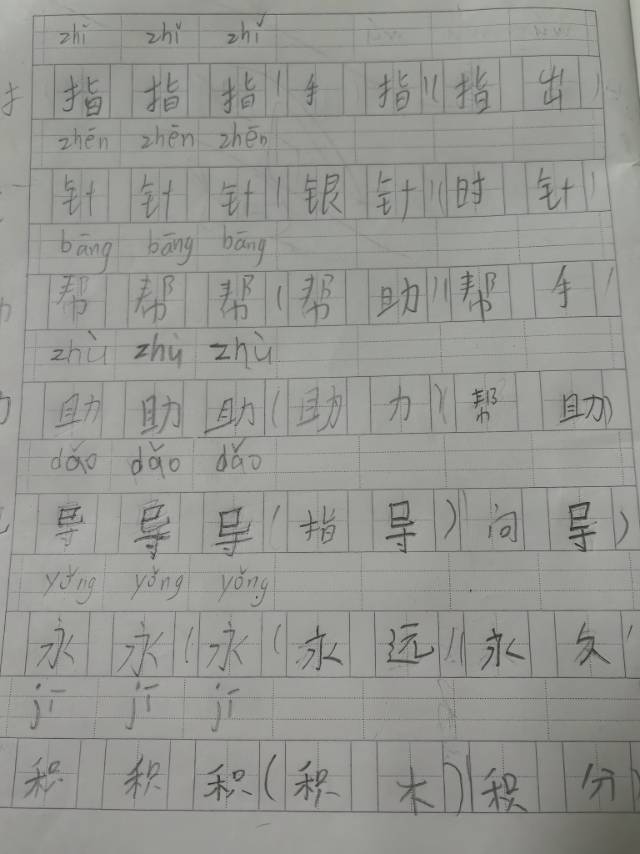 zhǐ zhǐ zhǐ
指 指 指(手 指)(指 出)
zhēn zhēn zhēn
针 针 针(银 针)(时 针)
bāng bāng bāng
帮 帮 帮(帮 助)(帮 手)
zhù zhù zhù
助 助 助(助 力)(帮 助)
dǎo dǎo dǎo
导 导 导(指 导)(向 导)
yǒng yǒng yǒng
永 永(永(永 远)(永 久)
jī jī jī
积 积 积(积 木)(积 分)